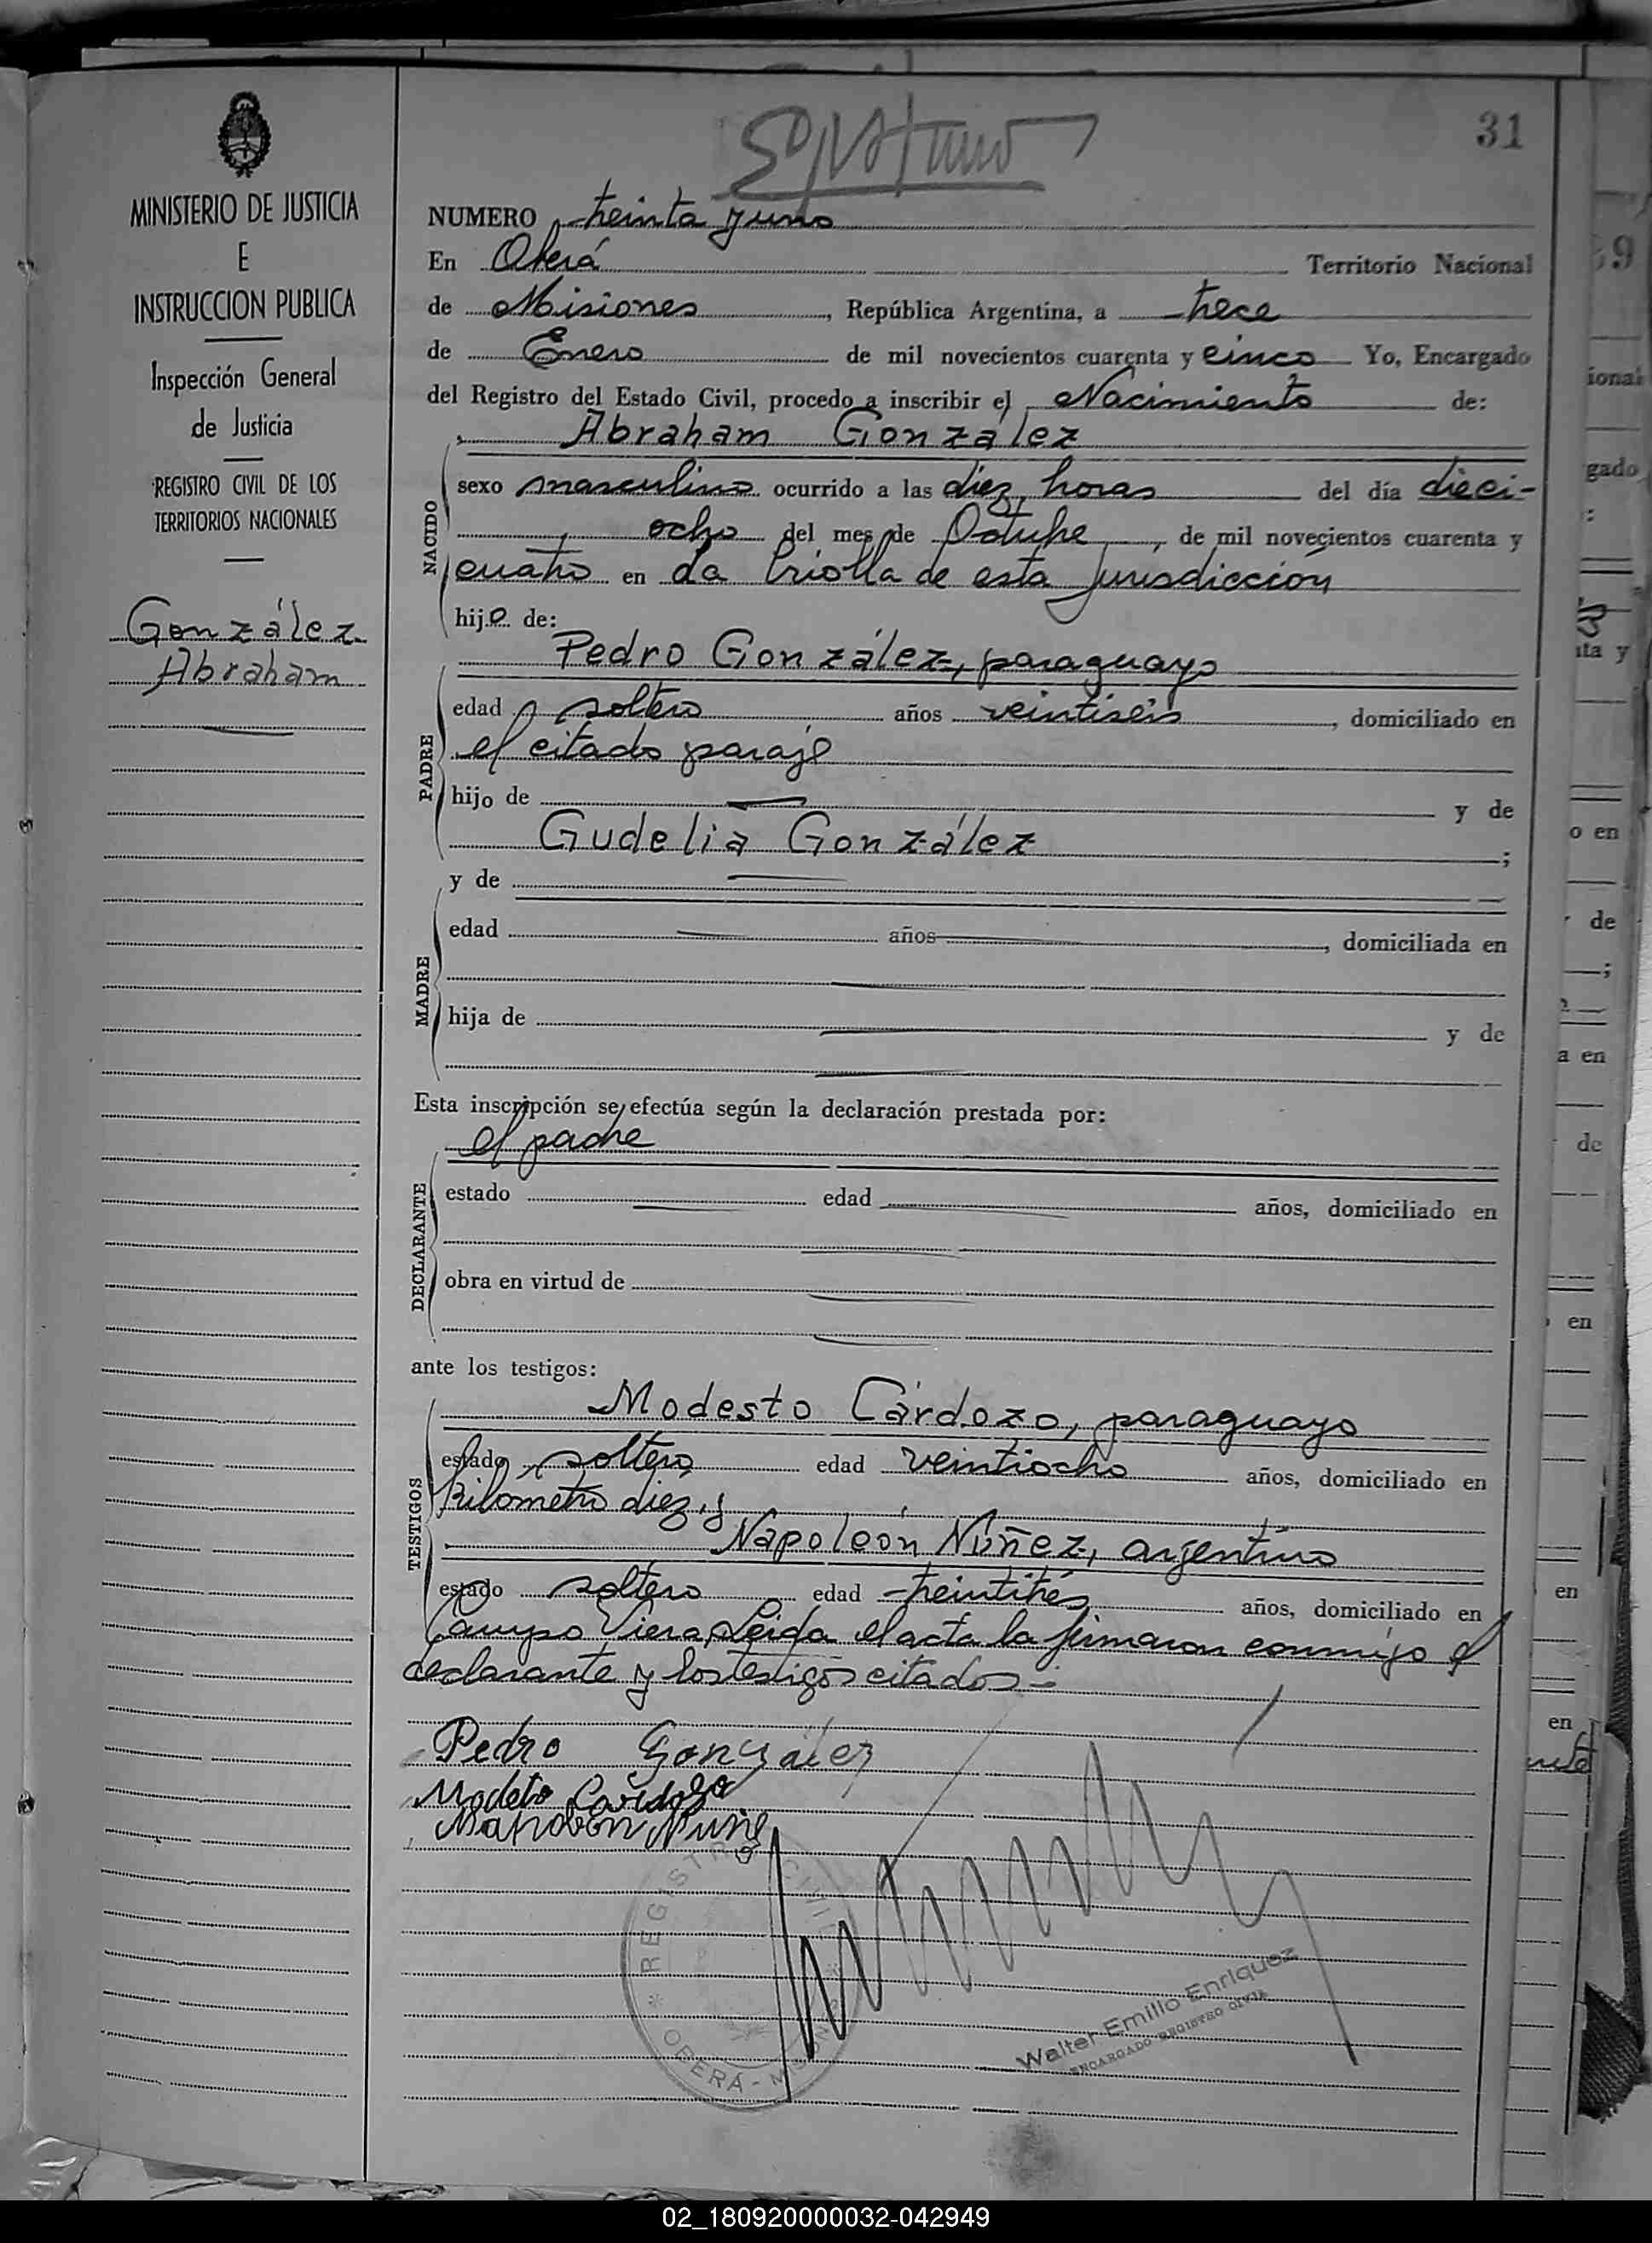 31
MINISTERIO DE JUSTICIA
E
INSTRUCCION PUBLICA
Inspección General
de Justicia
REGISTRO CIVIL DE LOS
TERRITORIOS NACIONALES
González
Abraham
NUMERO treinta y uno
En Oberá Territorio Nacional
de Misiones, República Argentina, a trece
de Enero de mil novecientos cuarenta y cinco Yo, Encargado
del Registro del Estado Civil, procedo a inscribir el Nacimiento de:
Abraham González
NACIDO
sexo masculino ocurrido a las diez horas del día dieci-
ocho del mes de Octubre, de mil novecientos cuarenta y
cuatro en La Criolla de esta Jurisdicción
hijo de:
Pedro González, paraguayo
PADRE
edad soltero años veintiseis, domiciliado en
el citado paraje
hijo de y de
Gudelia González;
y de
MADRE
edad años, domiciliada en
hija de y de
Esta inscripción se efectúa según la declaración prestada por:
el padre
DECLARANTE
estado edad años, domiciliado en
obra en virtud de
ante los testigos:
Modesto Cárdozo, paraguayo
TESTIGOS
estado soltero edad veintiocho años, domiciliado en
Kilometro diez y
Napoleón Núñez, argentino
estado soltero edad treintitrés años, domiciliado en
Campo Viera, Leida el acta la firmaron conmigo el
declarante y los testigos citados.-
Pedro González
Modeto Cardozo
Napoleon Nuñez
REGISTRO CIVIL * OBERÁ - MISIONES *
Walter Emilio Enriquez
ENCARGADO REGISTRO CIVIL
02_180920000032-042949